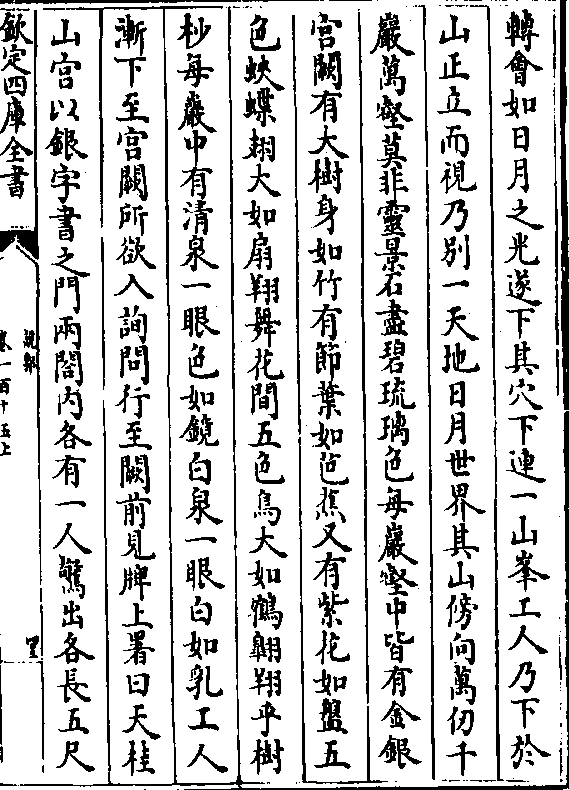 轉會如日月之光遂下其穴下連一山峯工人乃下於
山正立而視乃別一天地日月世界其山傍向萬仞千
巖萬壑莫非靈景石盡碧琉璃色每巖壑中皆有金銀
宫闕有大樹身如竹有節葉如芭蕉又有紫花如盤五
色蛺蝶翅大如扇翔舞花間五色鳥大如鶴翺翔乎樹
杪每巖中有清泉一眼色如鏡白泉一眼白如乳工人
漸下至宫闕所欲入詢問行至闕前見牌上署曰天桂
山宫以銀字書之門兩閤内各有一人驚出各長五尺
欽定四庫全書
說郛
卷一百十五上